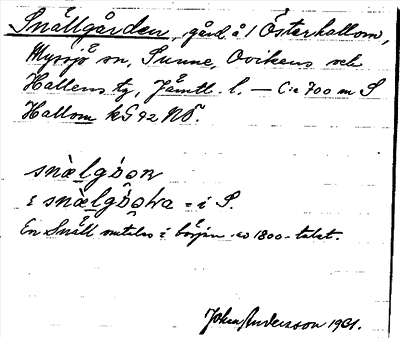 Snällgården, gård å 1 Österhallom,
Myssjö sn, Sunne, Ovikens och
Hallens tg, Jämtl. l. — C:a 700 m S
Hallom k G 92 NÖ.
snælgɷ̀ọn
i snælgɷ̀ọṙa = i S.
En Snäll omtalas i början av 1800-talet.
John Andersson 1931.